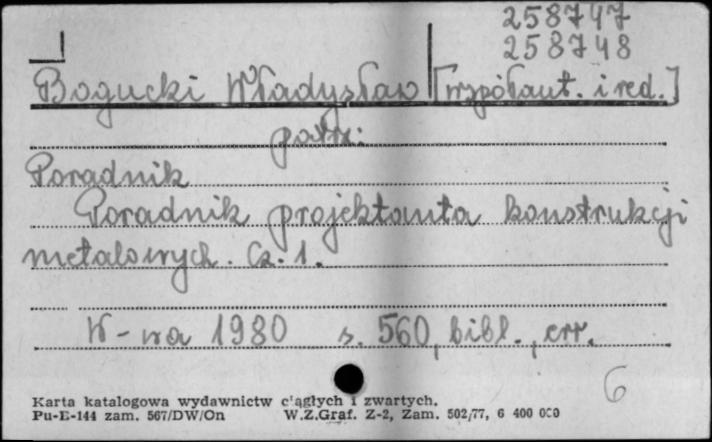 258747
258748
Bogucki Władysław [współaut. i red.]
patrz:
Poradnik
Poradnik projektanta konstrukcji
metalowych. Cz. 1.
W-wa 1980 s. 560, bibl., err.
6
Karta katalogowa wydawnictw ciągłych i zwartych.
Pu-E-144 zam. 567/DW/On W.Z.Graf. Z-2, Zam. 502/77, 6 400 000